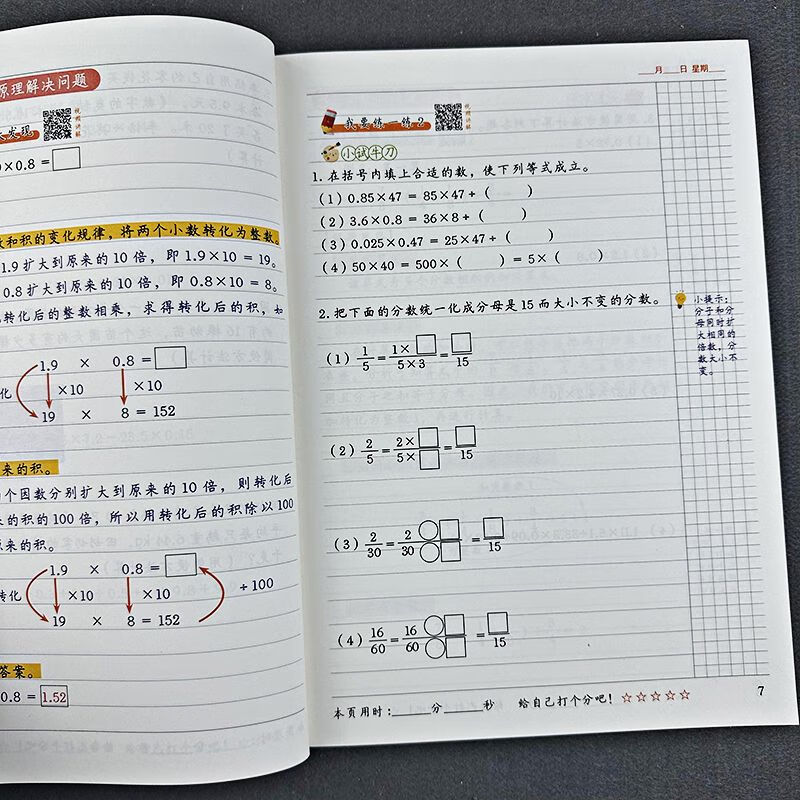 原理解决问题
发现
×0.8 = □
数和积的变化规律，将两个小数转化为整数。
1.9扩大到原来的10倍，即1.9×10 = 19。
0.8扩大到原来的10倍，即0.8×10 = 8。
转化后的整数相乘，求得转化后的积，如
1.9 × 0.8 = □
化 ×10 ×10
19 × 8 = 152
来的积。
个因数分别扩大到原来的10倍，则转化后
的积的100倍，所以用转化后的积除以100
原来的积。
1.9 × 0.8 = □
转化 ×10 ×10 ÷100
19 × 8 = 152
答案。
0.8 = 1.52
月 日 星期
我要练一练2
视频讲解
小试牛刀
1.在括号内填上合适的数，使下列等式成立。
(1) 0.85×47 = 85×47÷( )
(2) 3.6×0.8 = 36×8÷( )
(3) 0.025×0.47 = 25×47÷( )
(4) 50×40 = 500×( ) = 5×( )
2.把下面的分数统一化成分母是15而大小不变的分数。
(1) 1/5 = 1×□/5×3 = □/15
(2) 2/5 = 2×□/5×□ = □/15
(3) 2/30 = 2○□/30○□ = □/15
(4) 16/60 = 16○□/60○□ = □/15
小提示：
分子和分
母同时扩
大相同的
倍数，分
数大小不
变。
本页用时：____分____秒 给自己打个分吧！☆☆☆☆☆
7